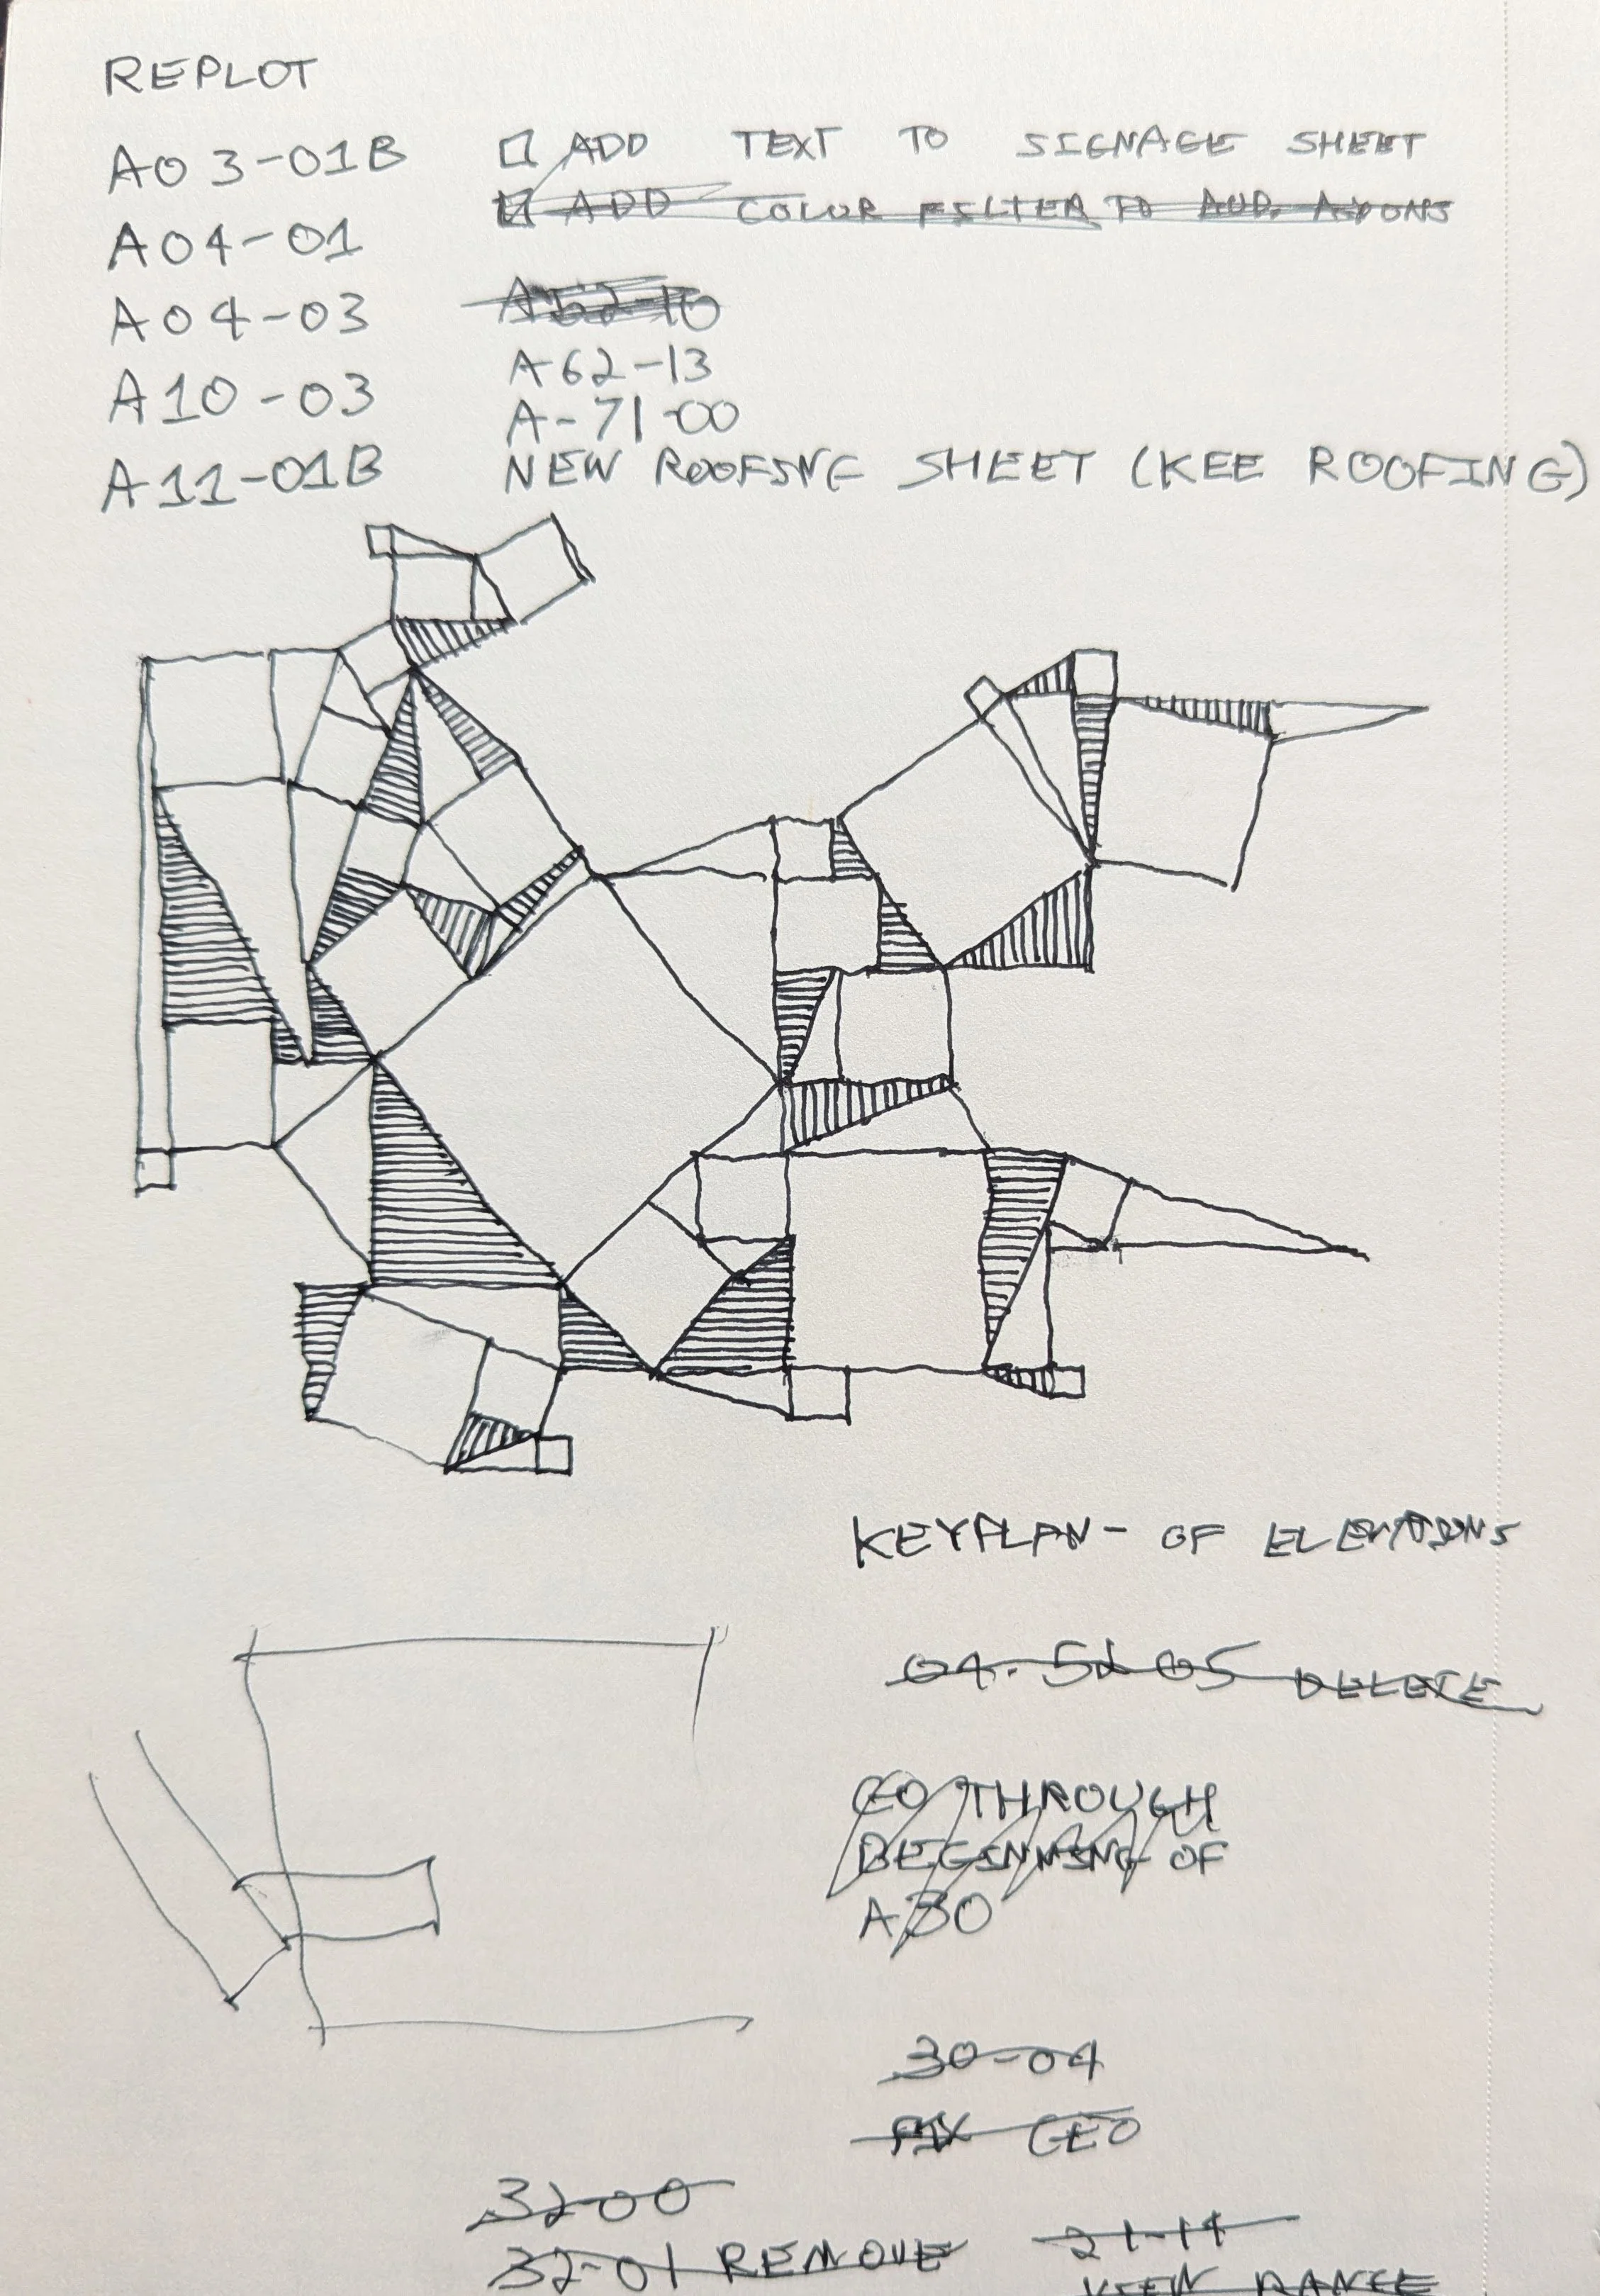 REPLOT
A03-01B
A04-01
A04-03
A10-03
A11-01B
ADD TEXT TO SIGNAGE SHEET
ADD COLOR FILTER TO AUD.
A62-13
A-71-00
NEW ROOFING SHEET (KEE ROOFING)
KEYPLAN- OF ELEVATIONS
04. 05 DELETE
GO THROUGH
BEGINNING OF
A30
30-04
FIX GEO
32-00
32-01 REMOVE
21-14
VIEW RANGE